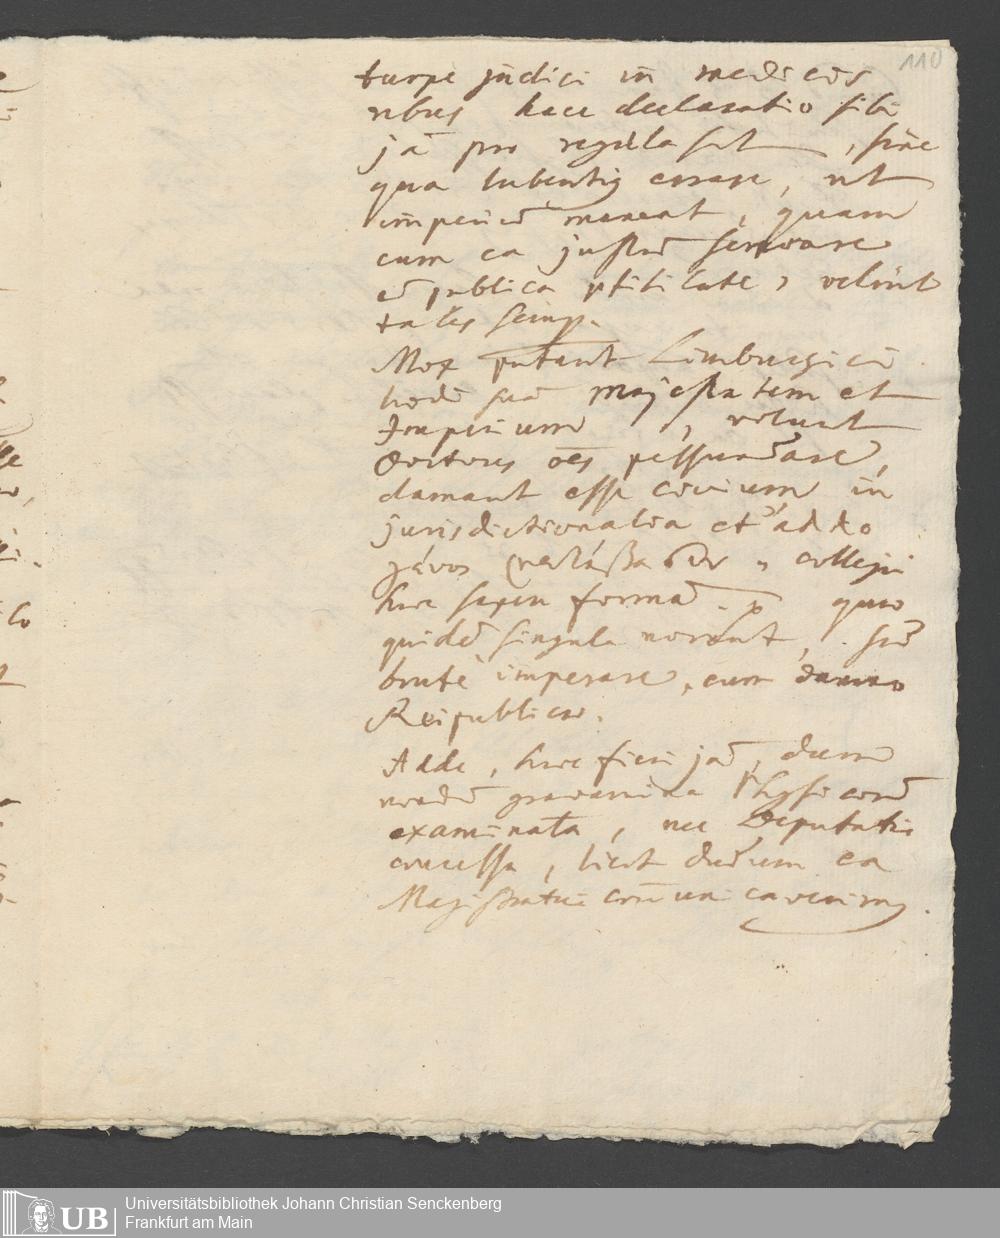 110
turpe judicī in medicos
rbus haec declaratio sibi
jā pro regula sit, sine
qua lubentiq errare, ut
imperiū maneat, quam
cum ea justū servare
publica utilitate, velint
tales semp.
Mox putant Limburgici
hodē suā majestatem et
Imperium, volunt
Doctores oēs pessundare,
clamant esse civium in
jurisdictionalia et addo
collegii
hic formā. quo
quidē singula norunt, sūo
brute imperare, cum damno
Reipublicae.
Adde, hoc fieri jā, dum
nondū gravamina Physicorū
examinata, nec Deputatis
concessa, licet dudum ea
Magistratui com̄unicaverimq.
UB
Universitätsbibliothek Johann Christian Senckenberg
Frankfurt am Main